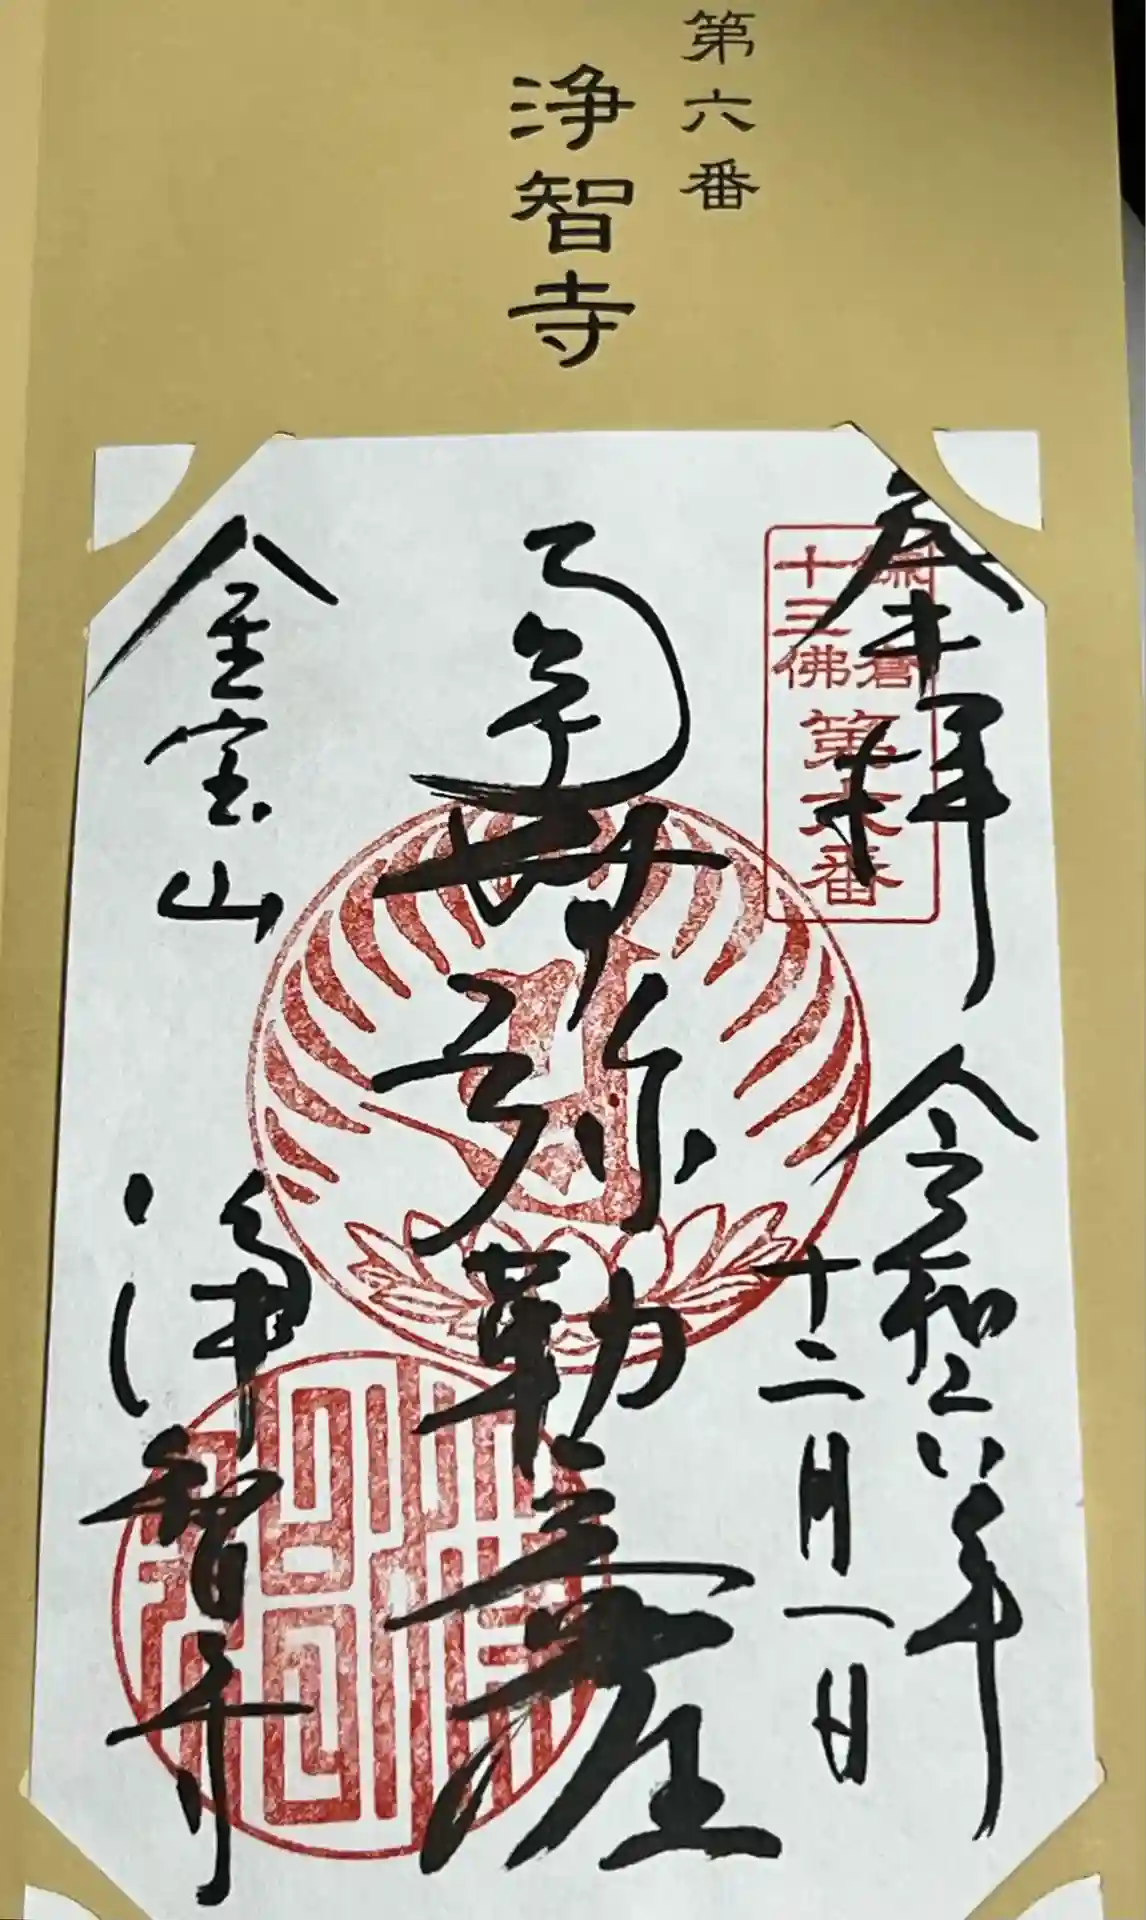 第六番
浄智寺
奉拝 令和六年
十二月一日
鎌倉
十三佛
第六番
南無弥勒菩薩
金宝山 浄智寺